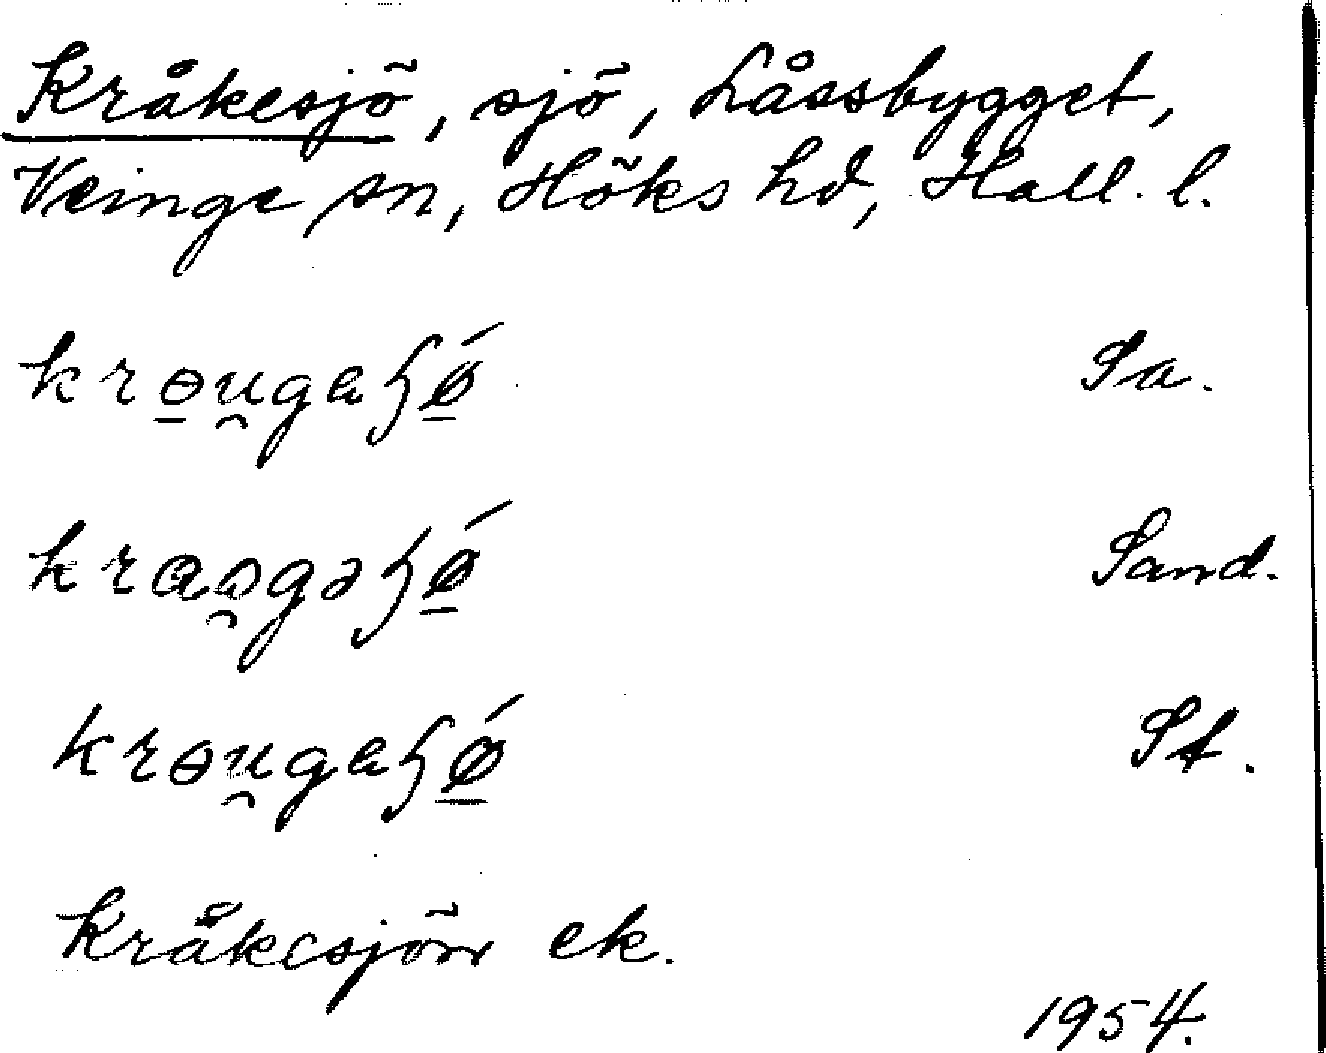 Kråkesjö, sjö, Låssbygget,
Veinge sn, Höks hd, Hall. l.
krɵu̯gaɧǿ Sa.
kraɔ̯gəɧǿ Sand.
krɵu̯gaɧǿ St.
Kråkesjön ek.
1954.